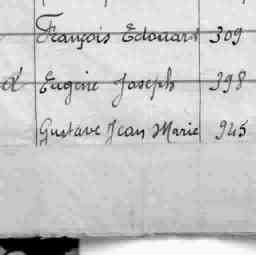 François Edouard 309
d' Eugène Joseph 398
Gustave Jean Marie 945